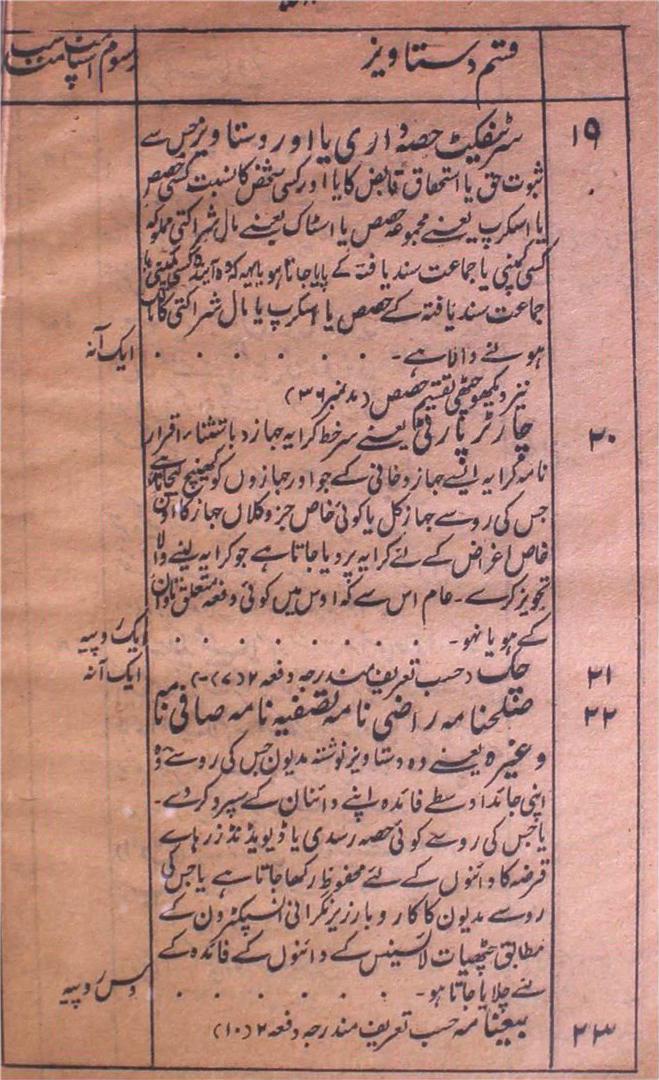 قسم دستاویز
رسوم اسٹامپ مناسب
۱۹
سرٹیفکیٹ حصہ داری یا اور دستاویز جس سے
ثبوت حق یا استحقاق قابض کا یا اور کسی شخص کا نسبت کسی حصص
یا اسکرپ یعنے مجموعہ حصص یا اسٹاک یعنے مال شراکتی مملوکہ
کسی کمپنی یا جماعت سند یافتہ کے پایا جاتا ہو یا یہہ کہ وہ آیندہ کسی کمپنی یا
جماعت سند یافتہ کے حصص یا اسکرپ یا مال شراکتی کا مالک
ہونے والا ہے۔ . . . . . . . ایک آنہ
نیز دیکھو چٹھی تقسیم حصص (مد نمبر ۳۶)
۲۰
چارٹر پارٹی یعنے سرخط کرایہ جہاز (باستثناء اقرار
نامہ کرایہ ایسے جہاز دخانی کے جو اور جہازوں کو کھینچ لیجاتا ہے
جس کی رو سے جہاز کل یا کوئی خاص جزو کلاں جہاز کا اون
خاص اغراض کے لئے کرایہ پر دیا جاتا ہے جو کرایہ لینے والا
تجویز کرے۔ عام اس سے کہ اوس میں کوئی دفعہ متعلق تاوان
کے ہو یا نہو۔ . . . . . . . . ایک روپیہ
۲۱
چک (حسب تعریف مندرجہ دفعہ ۲ (۷)۔) ایک آنہ
۲۲
صلحنامہ راضی نامہ تصفیہ نامہ صافی نامہ
وغیرہ یعنے وہ دستاویز نوشتہ مدیون جس کی رو سے وہ
اپنی جائداد واسطے فائدہ اپنے دائنان کے سپرد کردے۔
یا جس کی روسے کوئی حصہ رسدی یا ڈیویڈنڈ زرہاے
قرضہ کا دائنوں کے لئے محفوظ رکھا جاتا ہے یا جس کی
رو سے مدیون کا کاروبار زیر نگرانی انسپکٹرون کے
مطابق چٹھیات لائسینس کے دائنوں کے فائدہ کے
لئے چلایا جاتا ہو۔ . . . . . . . دس روپیہ
۲۳
بیعنامہ حسب تعریف مندرجہ دفعہ ۲ (۱۰)